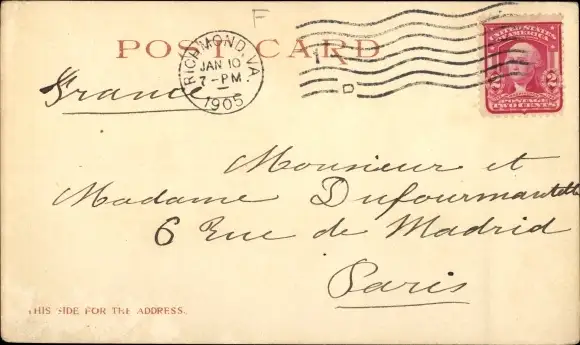 F
POST CARD
RICHMOND, VA.
JAN 10
7-PM
1905
1
D
UNITED STATES
OF AMERICA
2 2
POSTAGE
TWO CENTS
France
Monsieur et
Madame Dufourmantelle
6 Rue de Madrid
Paris
THIS SIDE FOR THE ADDRESS.